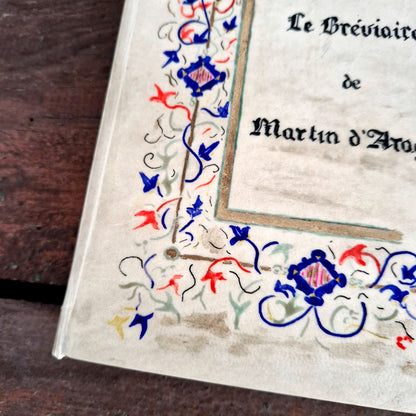 Le Bréviaire
de
Martin d'